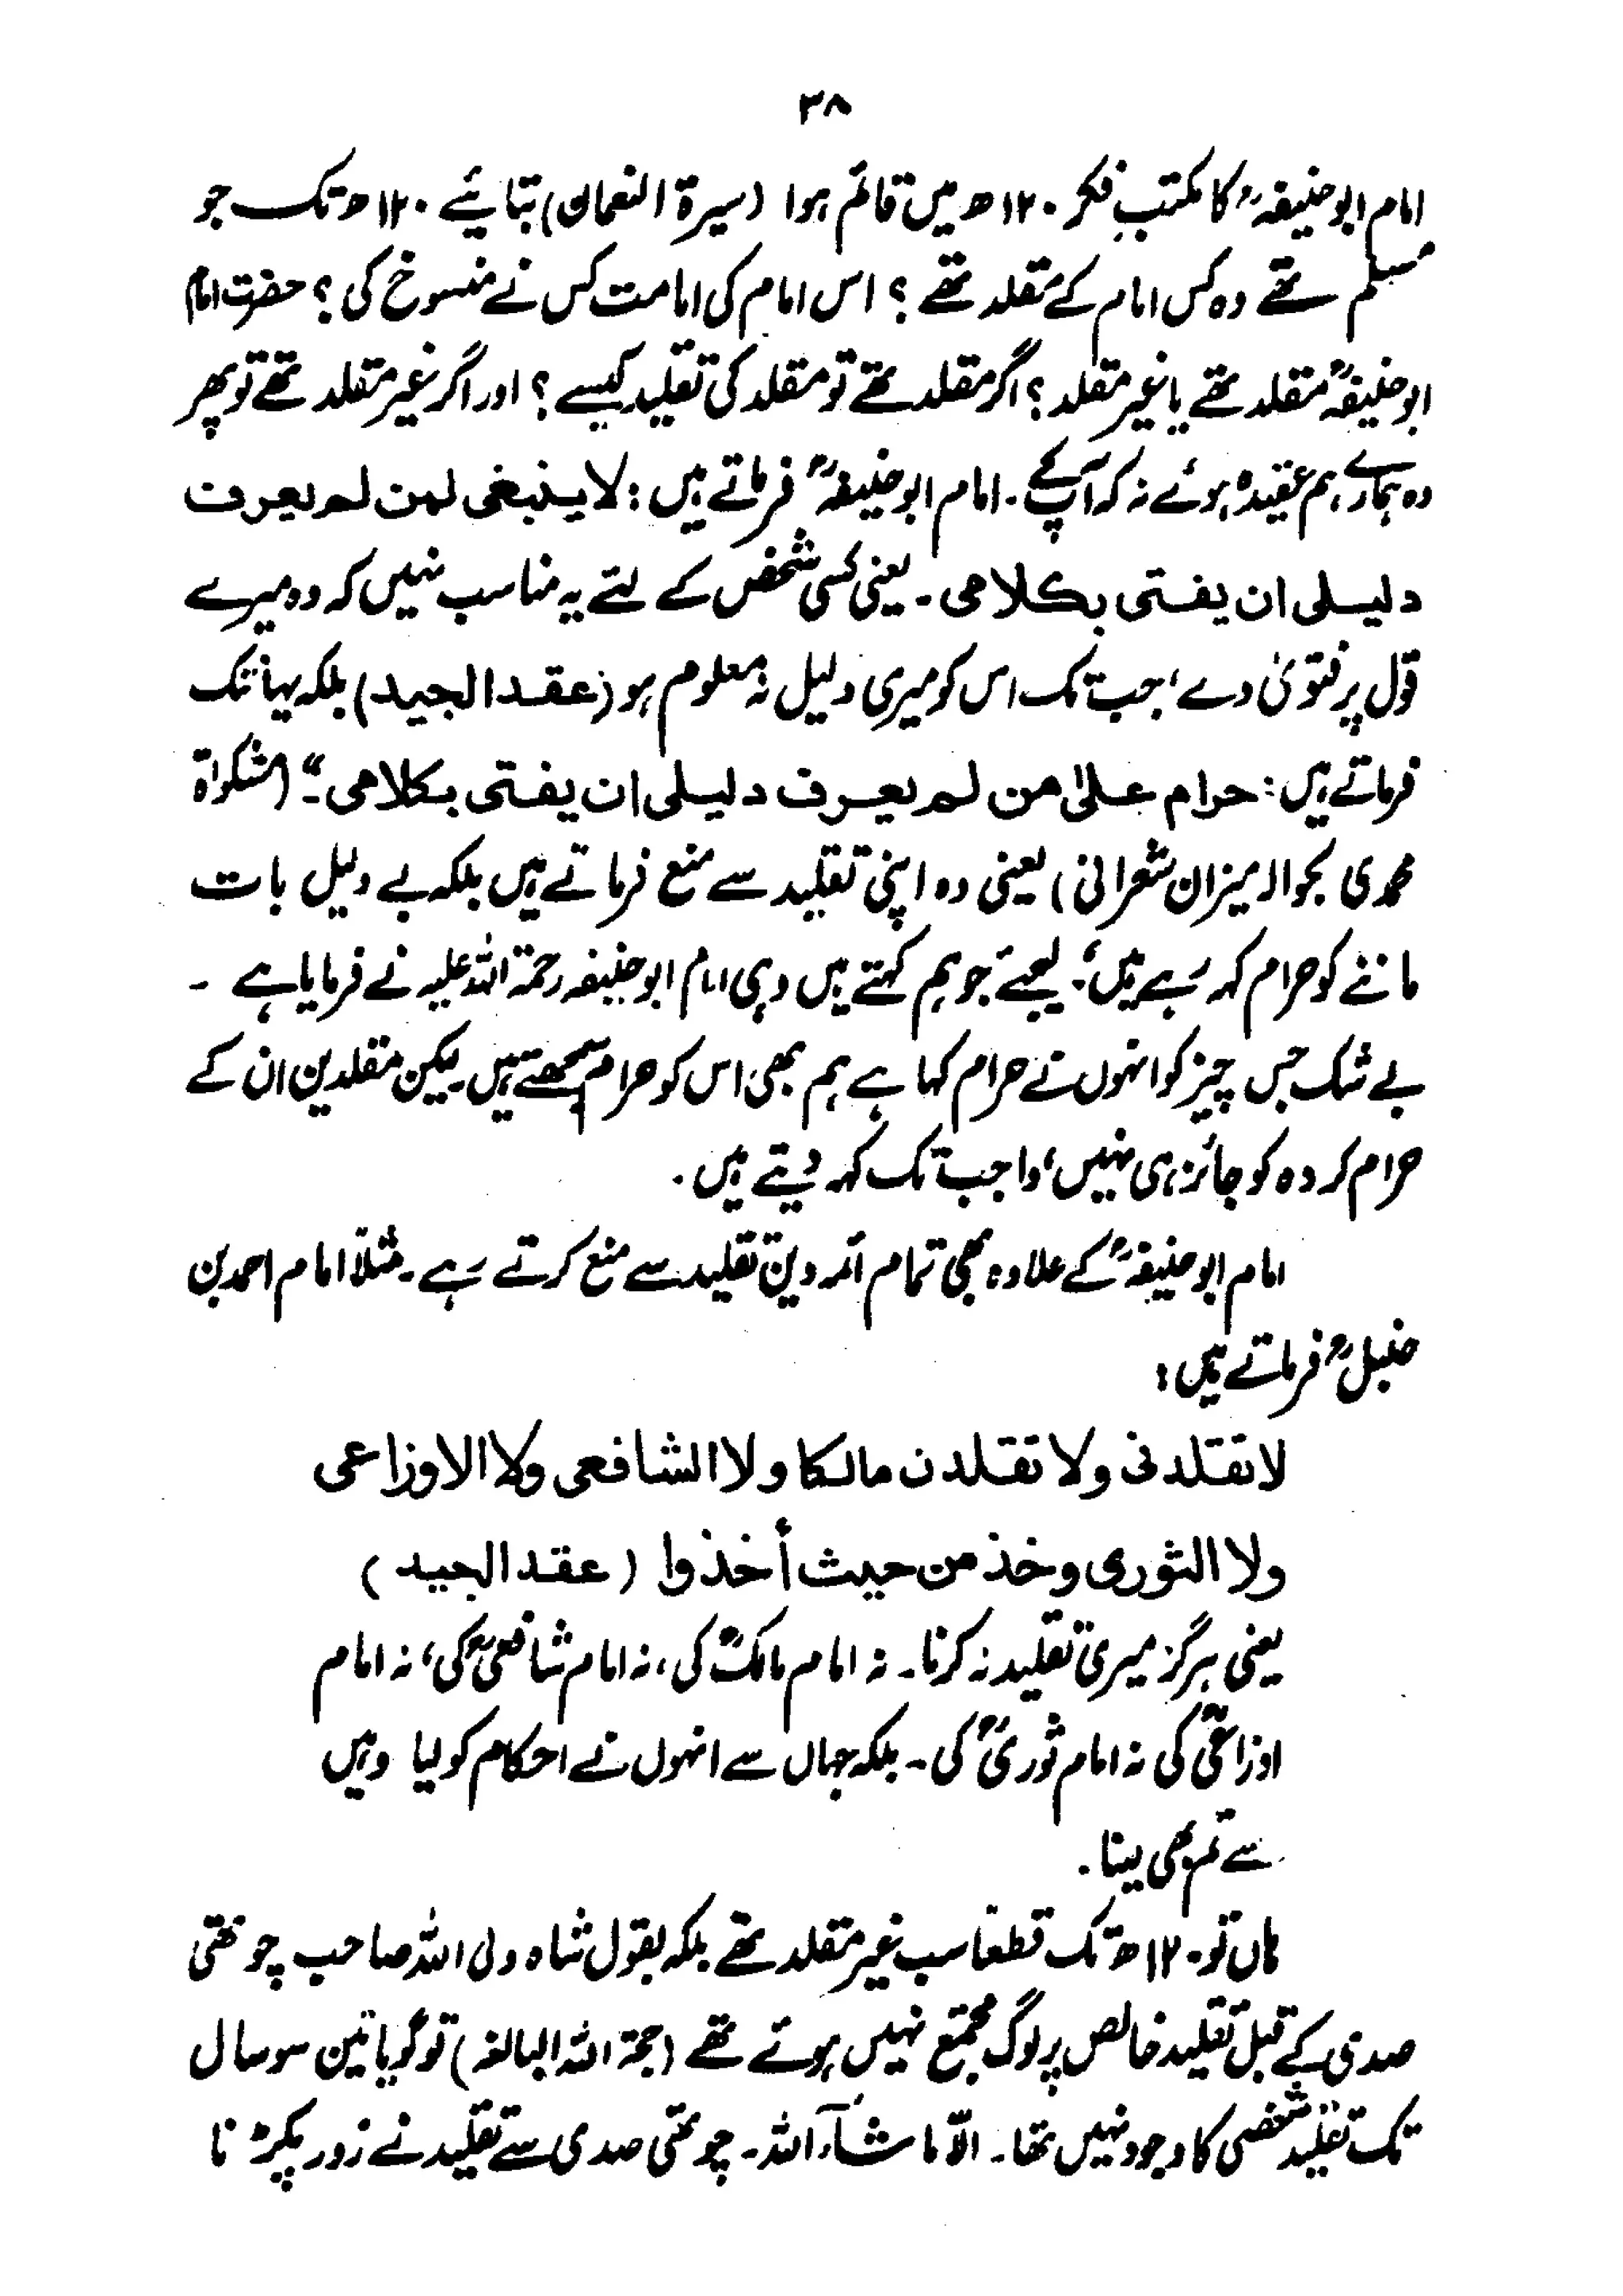 ۳۸
امام ابو حنیفہؒ کا مکتبِ فکر ۱۲۰ھ میں قائم ہوا (سیرۃ النعمان) بتائیے ۱۲۰ھ تک جو
مسلم تھے وہ کس امام کے مقلد تھے؟ اس امام کی امامت کس نے منسوخ کی؟ حضرت امام
ابو حنیفہؒ مقلد تھے یا غیر مقلد؟ اگر مقلد تھے تو مقلد کی تقلید کیسے؟ اور اگر غیر مقلد تھے تو پھر
وہ ہمارے ہم عقیدہ ہوئے نہ کہ آپ کے۔ امام ابو حنیفہؒ فرماتے ہیں: لا ینبغی لمن لم یعرف
دلیلی ان یفتی بکلامی۔ یعنی کسی شخص کے لئے یہ مناسب نہیں کہ وہ میرے
قول پر فتویٰ دے، جب تک اس کو میری دلیل نہ معلوم ہو (عقد الجید) بلکہ یہانتک
فرماتے ہیں: حرام علیٰ من لم یعرف دلیلی ان یفتی بکلامی۔" (مشکوٰۃ
محمدی بحوالہ میزان شعرانی) یعنی وہ اپنی تقلید سے منع فرماتے ہیں بلکہ بے دلیل بات
ماننے کو حرام کہہ رہے ہیں۔ لیجئے جو ہم کہتے ہیں وہی امام ابو حنیفہ رحمۃ اللہ علیہ نے فرمایا ہے ۔
بے شک جس چیز کو انہوں نے حرام کہا ہے ہم بھی اس کو حرام سمجھتے ہیں۔ لیکن مقلدین ان کے
حرام کردہ کو جائز ہی نہیں، واجب تک کہہ دیتے ہیں۔
امام ابو حنیفہؒ کے علاوہ بھی تمام ائمہ دین تقلید سے منع کرتے رہے۔ مثلاً امام احمد بن
حنبلؒ فرماتے ہیں:
لا تقلدنی ولا تقلدن مالکا ولا الشافعی ولا الاوزاعی
ولا الثوری وخذ من حیث أخذوا (عقد الجید)
یعنی ہرگز میری تقلید نہ کرنا۔ نہ امام مالکؒ کی، نہ امام شافعیؒ کی، نہ امام
اوزاعیؒ کی نہ امام ثوریؒ کی۔ بلکہ جہاں سے انہوں نے احکام کو لیا وہیں
سے تم بھی لینا۔
ہاں تو ۱۲۰ھ تک قطعاً سب غیر مقلد تھے بلکہ بقول شاہ ولی اللہ صاحب چوتھی
صدی کے قبل تقلید خالص پر لوگ مجتمع نہیں ہوئے تھے (حجۃ اللہ البالغہ) تو گویا تین سو سال
تک تقلید شخصی کا وجود نہیں تھا۔ الّا ما شاء اللہ۔ چوتھی صدی سے تقلید نے زور پکڑنا